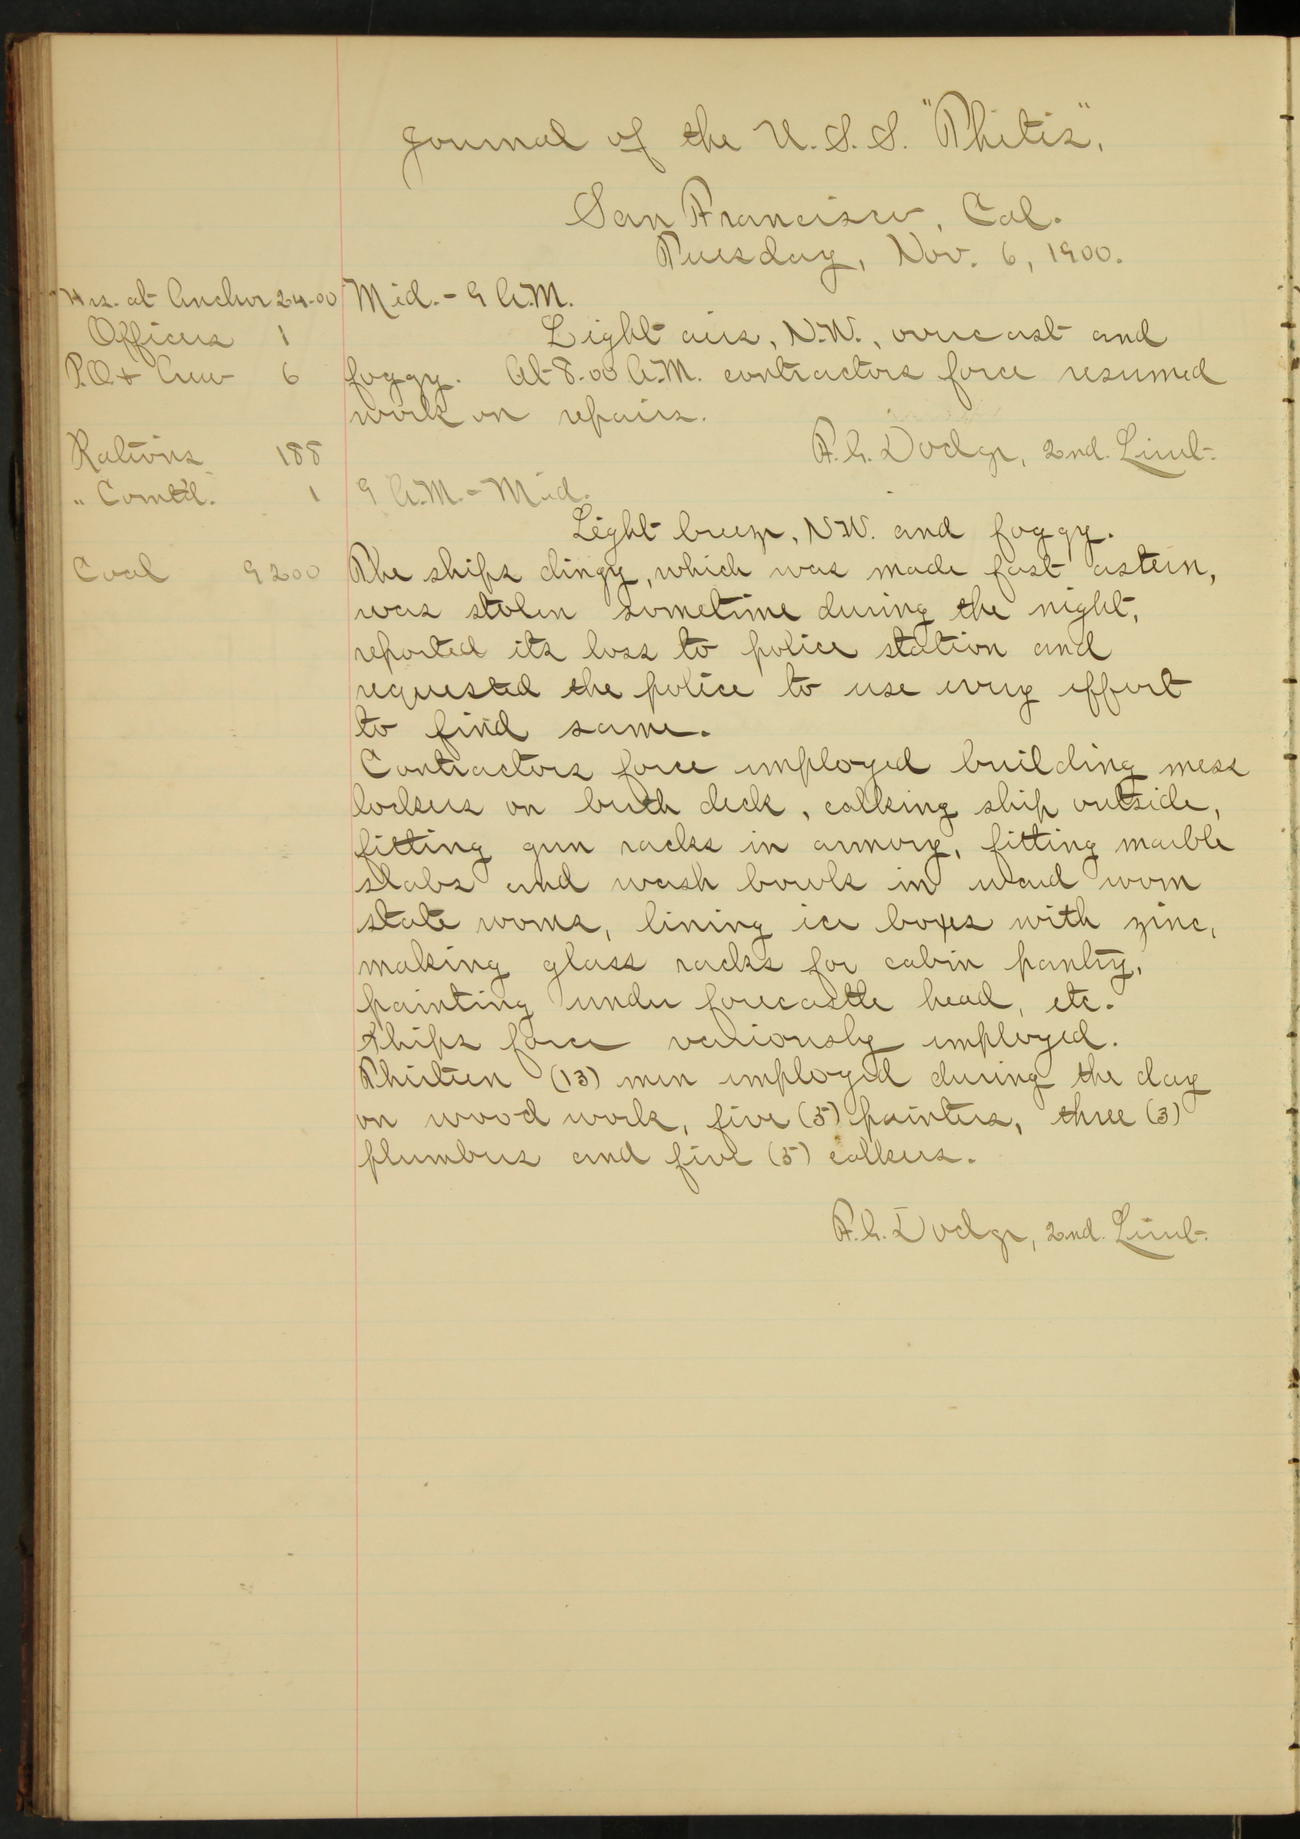 Journal of the U. S. S. "Thetis",
San Francisco, Cal.
Tuesday, Nov. 6, 1900.
Hrs. at Anchor 24-00
Officers 1
P.O. + Crew 6
Rations 188
" Com'td. 1
Coal 9200
Mid. - 9 A.M.
Light airs, N.W., overcast and
foggy. At 8.00 A.M. contractors force resumed
work on repairs.
F.G. Dodge, 2nd. Lieut.
9 A.M. - Mid.
Light breeze, N.W. and foggy.
The ships dingy, which was made fast astern,
was stolen sometime during the night,
reported its loss to police station and
requested the police to use every effort
to find same.
Contractors force employed building mess
lockers on berth deck, calking ship outside,
fitting gun racks in armory, fitting marble
slabs and wash bowls in ward room
state rooms, lining ice boxes with zinc,
making glass racks for cabin pantry,
painting under forecastle head, etc.
Ships force variously employed.
Thirteen (13) men employed during the day
on wood work, five (5) painters, three (3)
plumbers and five (5) calkers.
F.G. Dodge, 2nd. Lieut.